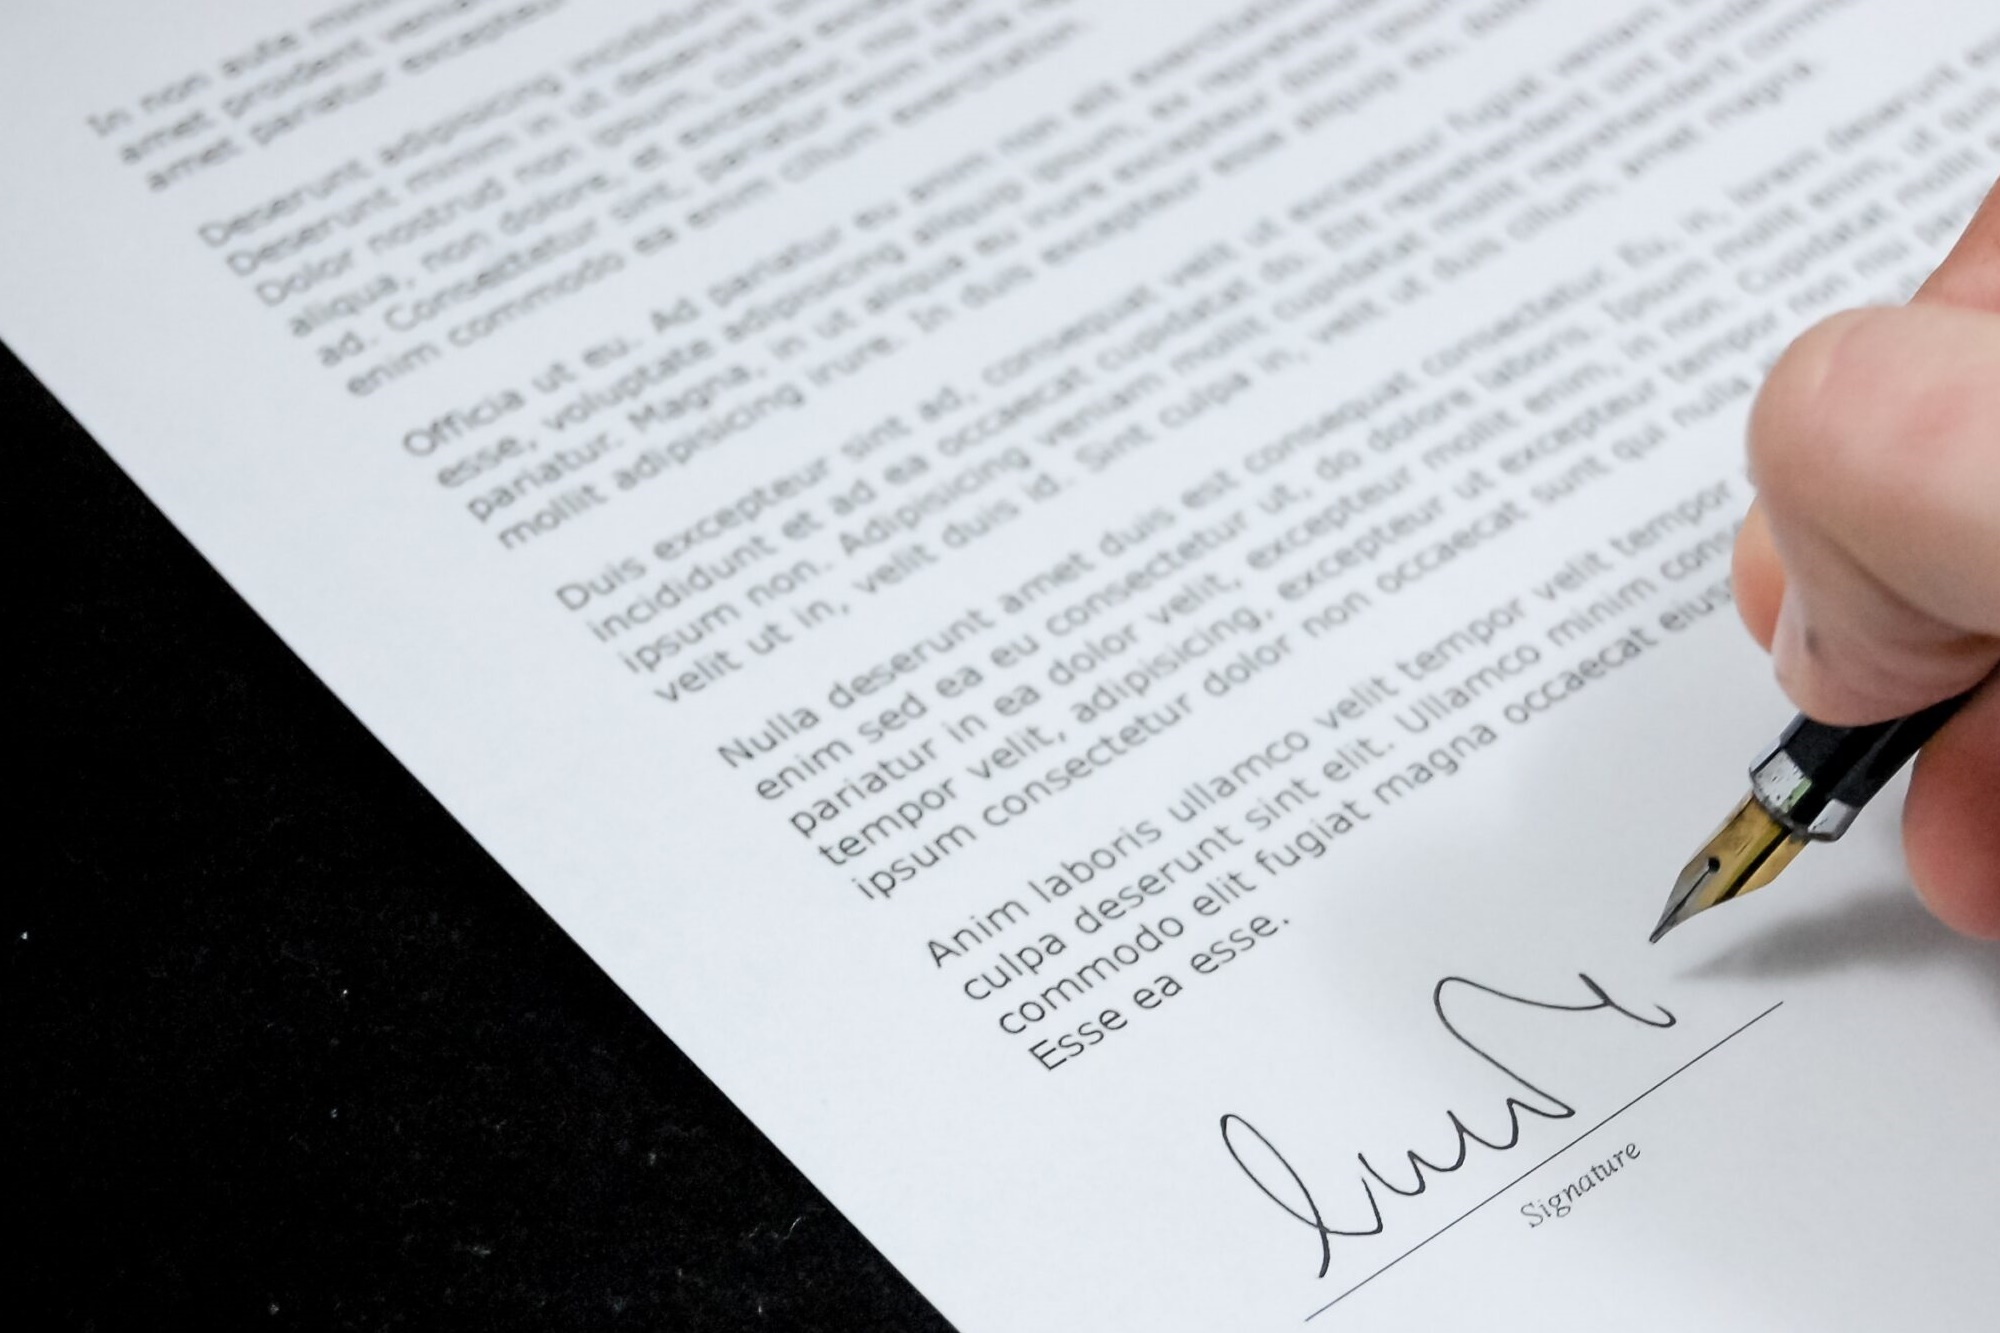 In non
amet proident
amet pariatur excepteur
Deserunt adipisicing incididunt
Deserunt minim in ut deserunt
Dolor nostrud non ipsum, culpa
aliqua, non dolore, et excepteur, nisi
ad. Consectetur sint, pariatur enim nulla
enim commodo ea enim cillum exercitation.
Officia ut eu. Ad pariatur eu anim non elit
esse, voluptate adipisicing aliquip ipsum, ex
pariatur. Magna, in ut aliqua eu irure excepteur dolor
mollit adipisicing irure. In duis excepteur esse aliquip eu,
Duis excepteur sint ad, consequat velit ut excepteur fugiat veniam
incididunt et ad ea occaecat cupidatat do. Elit reprehenderit sint
ipsum non. Adipisicing veniam mollit cupidatat mollit reprehenderit
velit ut in, velit duis id. Sint culpa in, velit ut duis cillum, amet magna.
Nulla deserunt amet duis est consequat consectetur eu, in, lorem deserunt
enim sed ea eu consectetur ut, do dolore laboris. Ipsum mollit enim, ut
pariatur in ea dolor velit, excepteur mollit enim, in non. Cupidatat mollit
tempor velit, adipisicing, excepteur ut excepteur tempor non nisi
ipsum consectetur dolor non occaecat sunt qui nulla
Anim laboris ullamco velit tempor velit tempor
culpa deserunt sint elit. Ullamco minim
commodo elit fugiat magna occaecat
Esse ea esse.
Signature